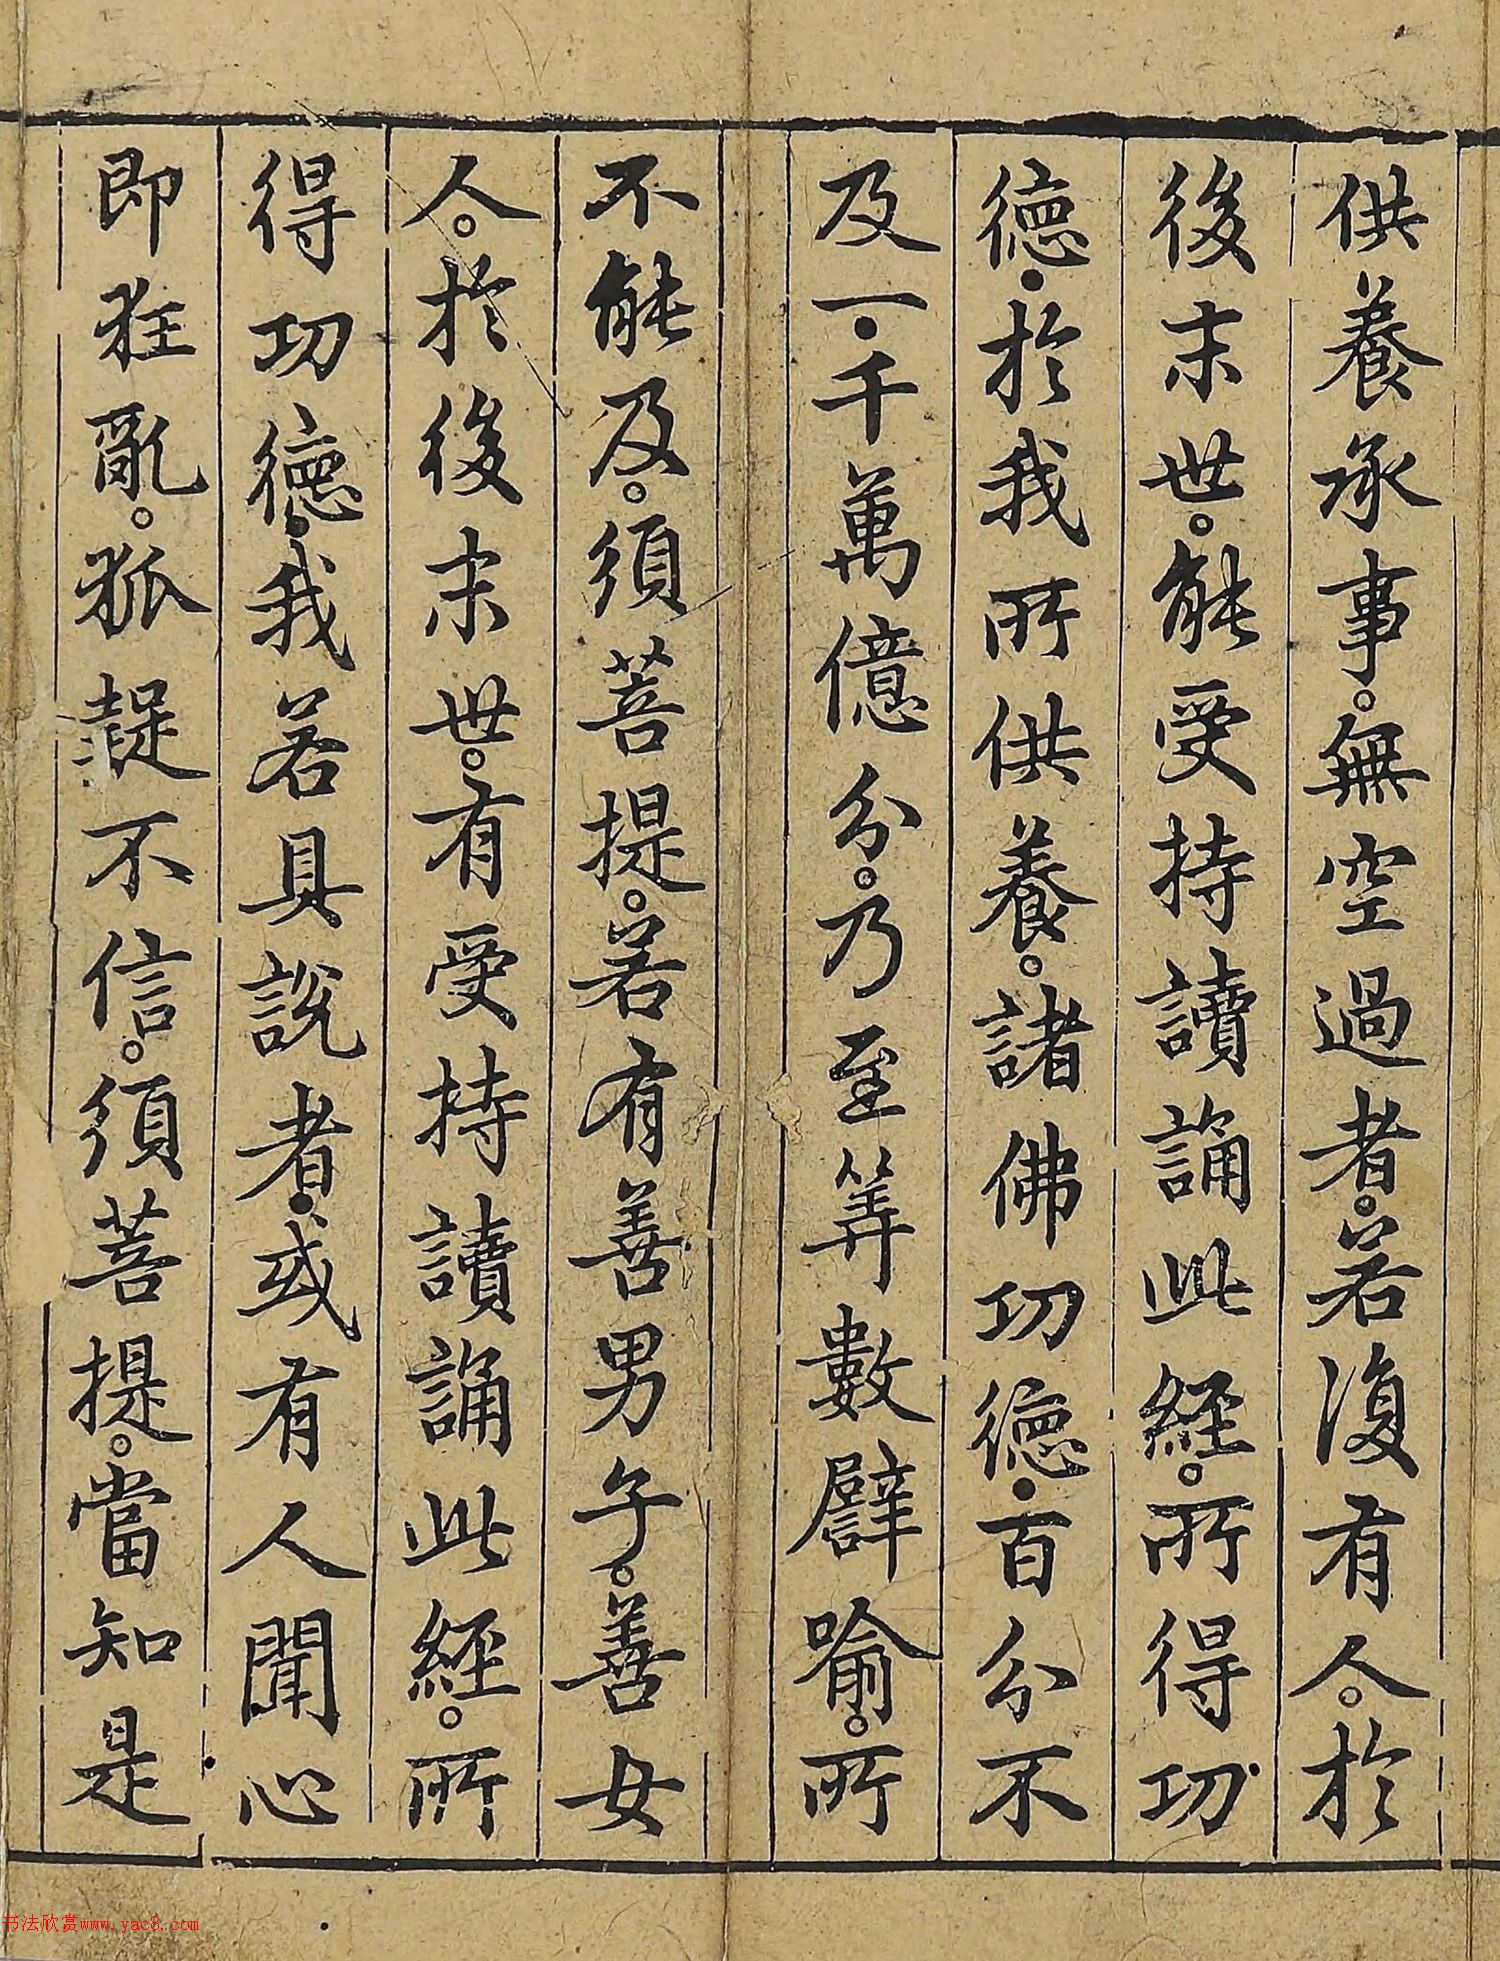 供養承事。無空過者。若復有人。於
後末世。能受持讀誦此經。所得功
德。於我所供養。諸佛功德。百分不
及一。千萬億分。乃至筭數譬喻。所
不能及。須菩提。若有善男子。善女
人。於後末世。有受持讀誦此經。所
得功德。我若具說者。或有人聞心
即狂亂。狐疑不信。須菩提。當知是
书法欣赏www.yac8.com